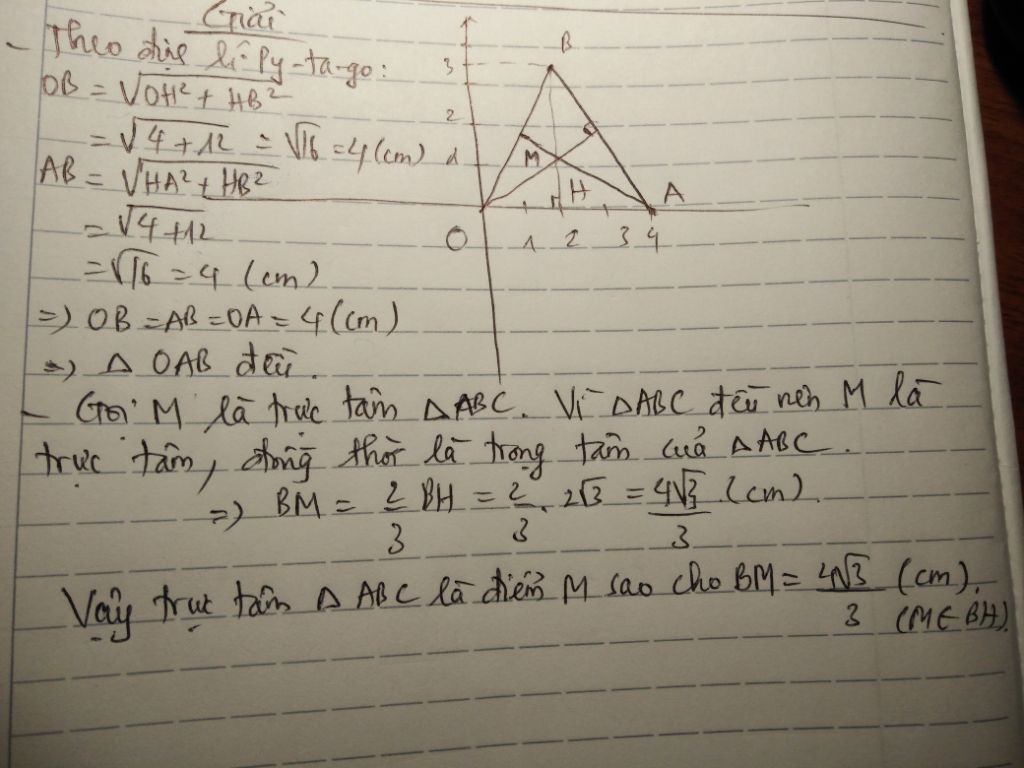 Giải
- Theo định lí Py-ta-go:
OB = √OH² + HB²
= √4 + 12 = √16 = 4 (cm)
AB = √HA² + HB²
= √4 + 12
= √16 = 4 (cm)
=> OB = AB = OA = 4 (cm)
=> △ OAB đều.
B
3
2
1
M
H
A
O
1 2 3 4
- Gọi M là trực tâm △ABC. Vì △ABC đều nên M là
trực tâm, đồng thời là trọng tâm của △ABC.
=> BM = 2/3 BH = 2/3 . 2√3 = 4√3/3 (cm).
Vậy trực tâm △ ABC là điểm M sao cho BM = 4√3/3 (cm).
(M∈BH)